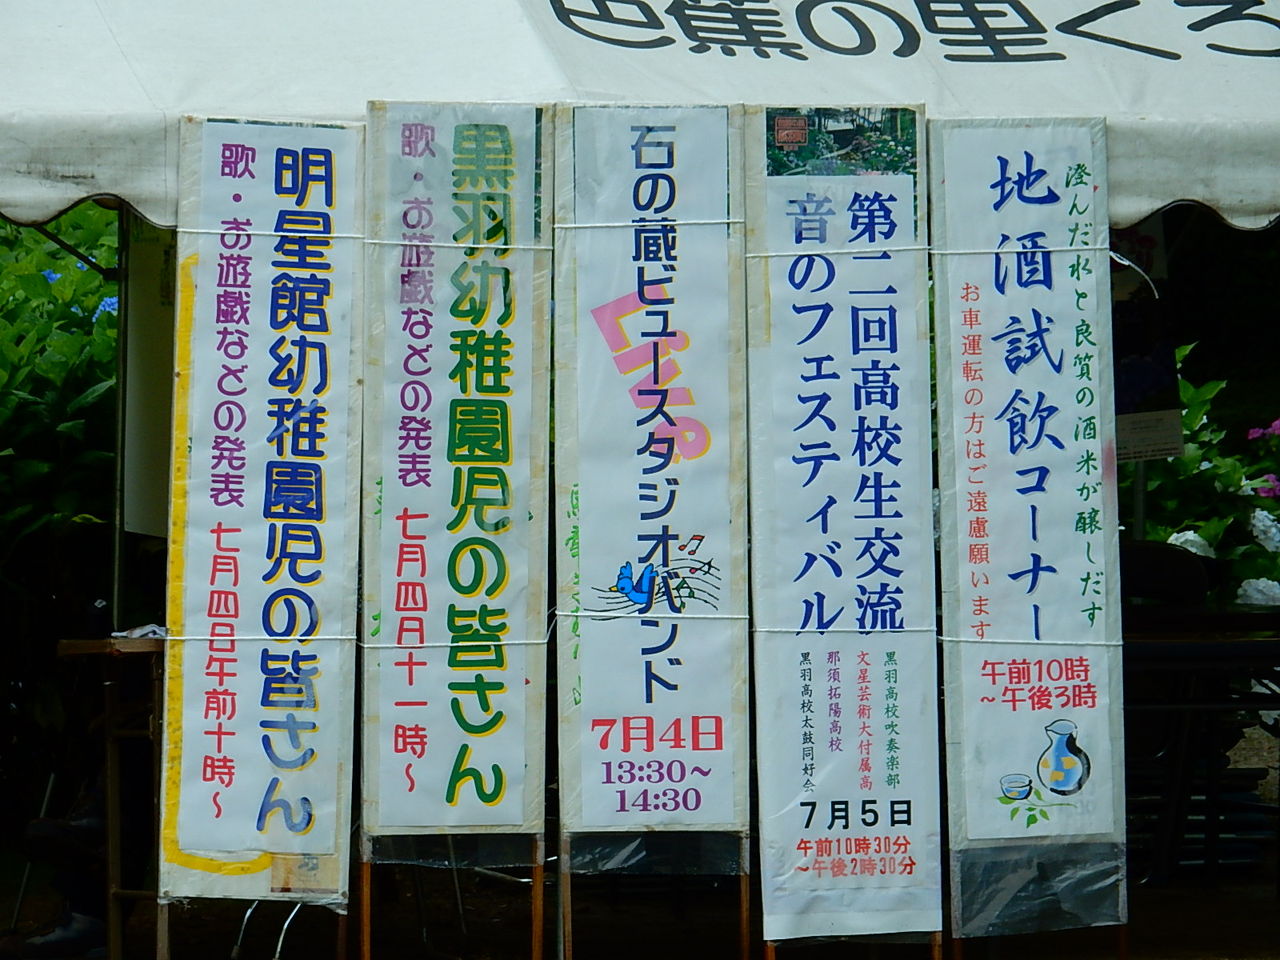 芭蕉の里くろ
澄んだ水と良質の酒米が醸しだす
地酒試飲コーナー
お車運転の方はご遠慮願います
午前10時
～午後3時
第二回高校生交流
音のフェスティバル
黒羽高校吹奏楽部
文星芸術大付属高
那須拓陽高校
黒羽高校太鼓同好会
7月5日
午前10時30分
～午後2時30分
石の蔵ビュースタジオバンド
Live
7月4日
13:30～
14:30
黒羽幼稚園児の皆さん
歌・お遊戯などの発表 七月四日十一時～
明星館幼稚園児の皆さん
歌・お遊戯などの発表 七月四日午前十時～